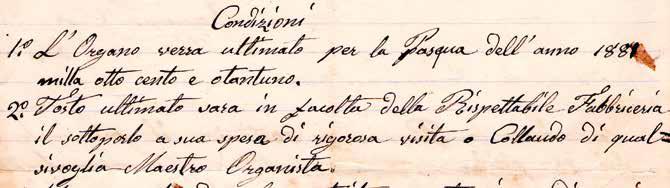 Condizioni
1.º L'Organo verra ultimato per la Pasqua dell'anno 1881
milla otto cento e otantuno.
2.º Tosto ultimato sara in facolta della Rispettabile Fabbriceria
il sottoporlo a sua spesa di rigorosa visita o Collaudo di qual=
sivoglia Maestro Organista.